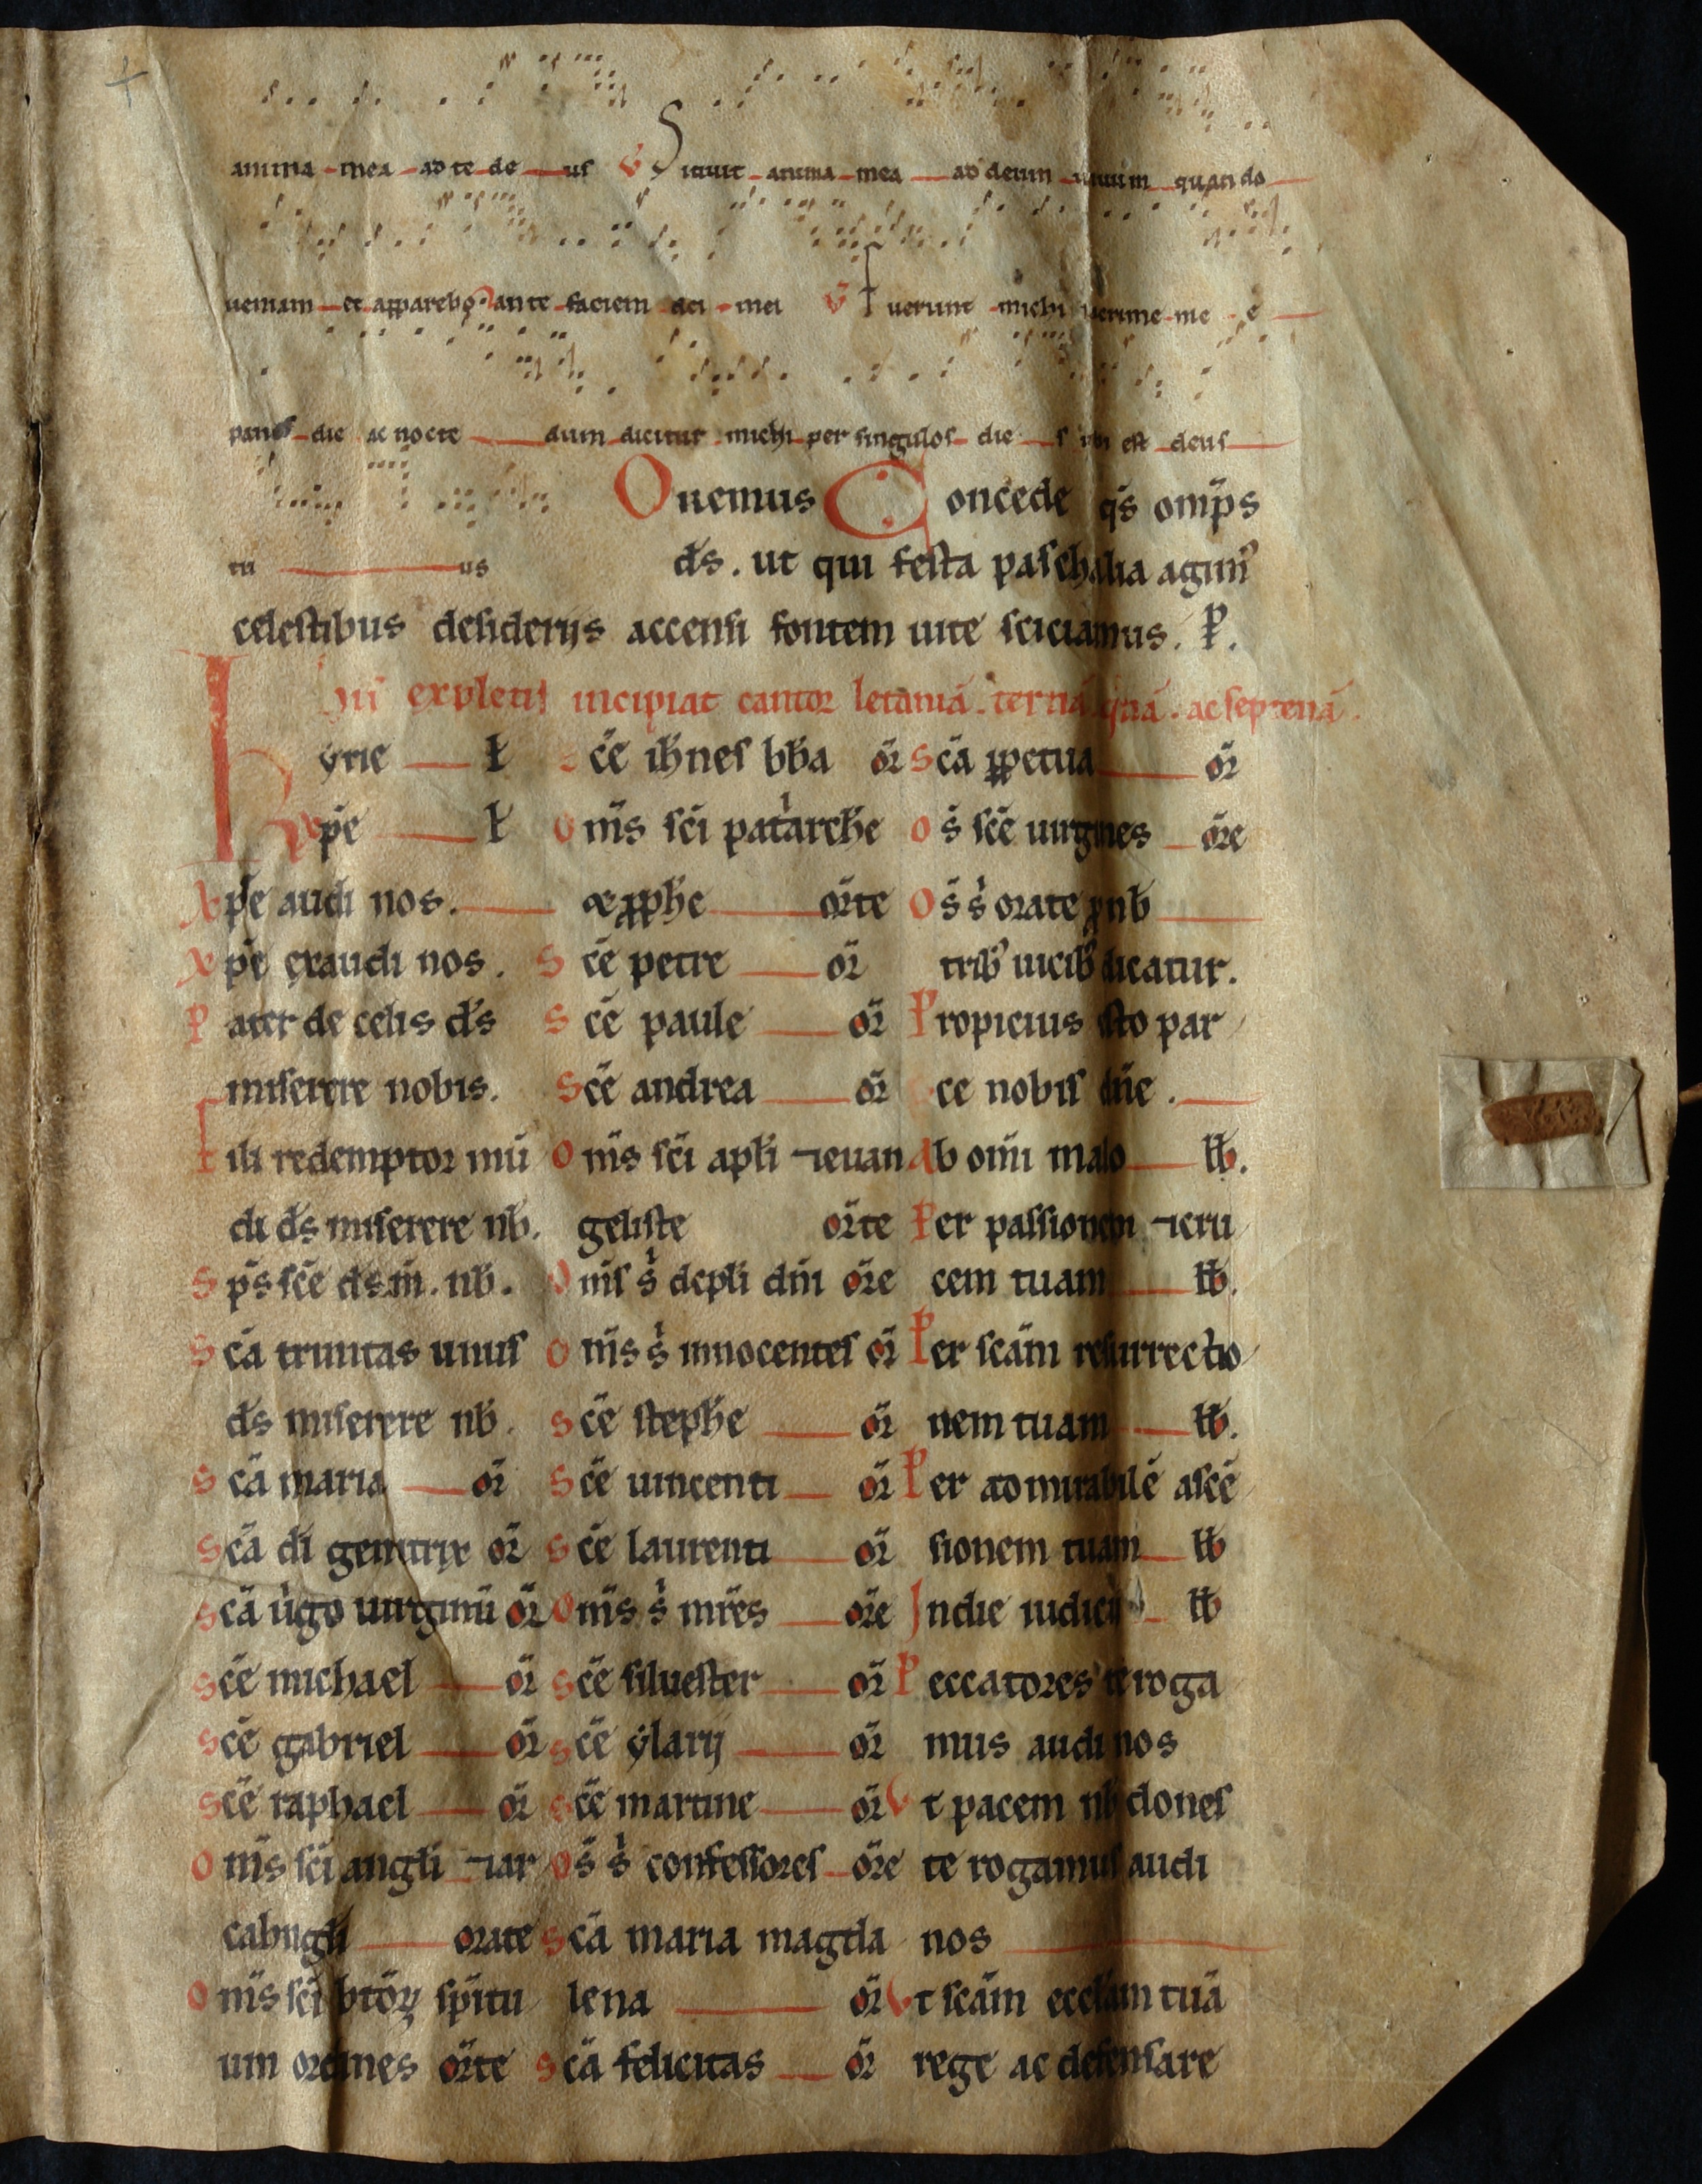 anima mea ad te deus V Sitiuit anima mea ad deum uiuum quando
ueniam et apparebo ante faciem dei mei V Fuerunt michi lacrime me e
panes die ac nocte dum dicitur michi per singulos dies ubi est deus
tuus
Oremus Concede qs̄ omp̄s
d̄s. ut qui festa paschalia agim᷒
celestibus desiderijs accensi fontem uite sciciamus. P̄.
hiis expletis incipiat cantor letaniā. ternā. quā. ac septenā.
Kyrie ł
Xp̄e ł
Xp̄e audi nos.
Xp̄e exaudi nos.
Pater de celis d̄s
miserere nobis.
Fili redemptor mū
di d̄s miserere nb̄.
Sp̄s sc̄e d̄s m̄. nb̄.
Sc̄a trinitas unus
d̄s miserere nb̄.
Sc̄a maria or̄
Sc̄a di genitrix or̄
Sc̄a u̓go uirginū or̄
Sc̄e michael or̄
Sc̄e gabriel or̄
Sc̄e raphael or̄
Om̄s sc̄i angl̄i ⁊ ar
cahngl̄i orate
Om̄s sc̄i btōꝝ sp̄itu
um ordines or̄te
Sc̄e ih̄nes bb̄a or̄
Om̄s sc̄i pat̓arch̄e
⁊ ꝓph̄e or̄te
Sc̄e petre or̄
Sc̄e paule or̄
Sc̄e andrea or̄
Om̄s sc̄i apl̄i ⁊ euan
geliste or̄te
Om̄s s̓ dcpl̄i dn̄i or̄e
Om̄s s̓ innocentes or̄
Sc̄e steph̄e or̄
Sc̄e uincenti or̄
Sc̄e laurenti or̄
Om̄s s̓ mr̄es or̄e
Sc̄e siluester or̄
Sc̄e ylarij or̄
Sc̄e martine or̄
Os̄ s̓ confessores or̄e
Sc̄a maria magda
lena or̄
Sc̄a felicitas or̄
Sc̄a ꝑpetua or̄
Os̄ sc̄e uirgines or̄e
Os̄ s̓ orate ꝓ nb̄
trib᷒ uicib᷒ dicatur.
Propicius esto par
ce nobis dn̄e.
Ab om̄i malo lb̄.
Per passionem ⁊ cru
cem tuam lb̄.
Per scām resurrectio
nem tuam lb̄.
Per admirabilē ascē
sionem tuam lb̄
In die iudicij lb̄
Peccatores te roga
mus audi nos
Vt pacem nb̄ dones
te rogamus audi
nos
Vt scām eccl̄am tuā
rege ac defensare